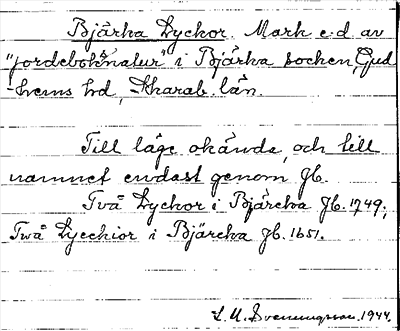 Bjärka Lyckor. Mark e.d. av
"jordeboksnatur" i Bjärka socken, Gud
-hems hd, Skarab. län.
Till läge okända, och till
namnet endast genom Jb.
Två Lyckor i Bjärcka Jb. 1749;
Twå Lyckior i Bjärcka Jb. 1651.
L. M. Svenungsson. 1944.